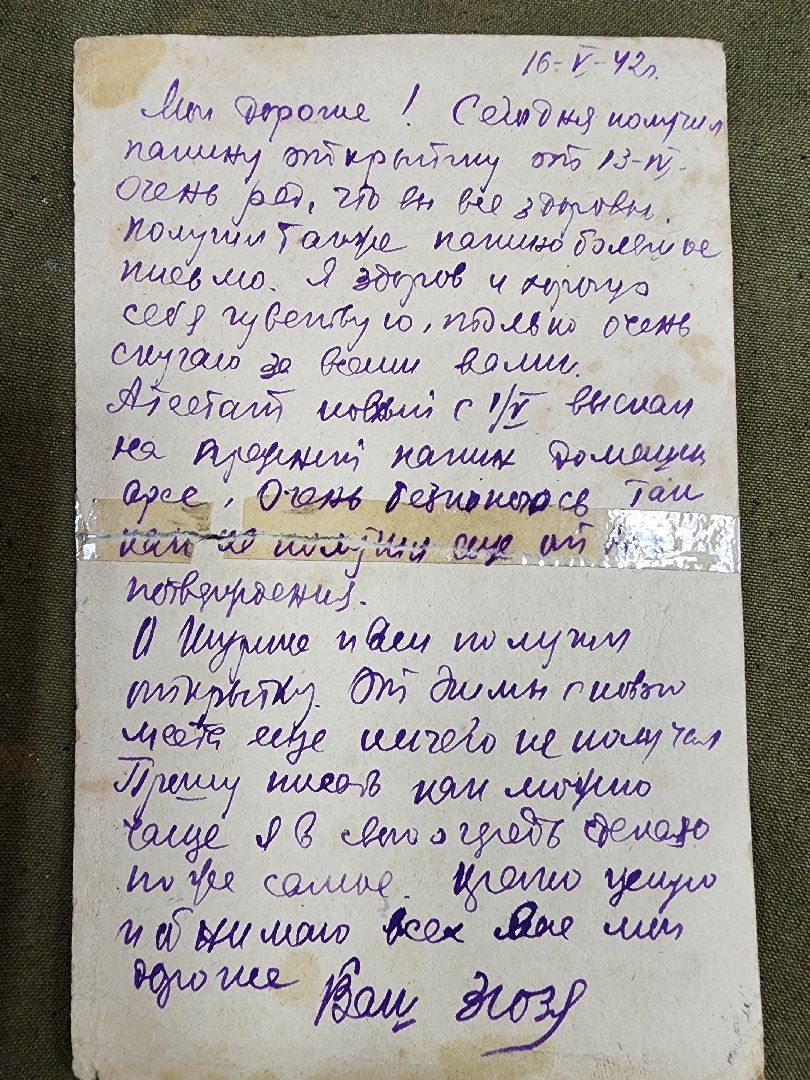 16-V-42г.
Мои дорогие! Сегодня получил
папину открытку от 13-IV.
Очень рад, что вы все здоровы.
Получил также папино большое
письмо. Я здоров и хорошо
себя чувствую, только очень
скучаю за всеми вами.
Атестат новый с 1/V выслал
на прежний наших домашн
адрес, Очень беспокоюсь так
как не получил еще от
потверждения.
О Шурике и Вели получил
открытку. От Эммы с нового
места еще ничего не получал
Прошу писать как можно
чаще я в свою очередь делаю
то же самое. Крепко целую
и обнимаю всех Вас мои
дорогие Ваш Зюзя